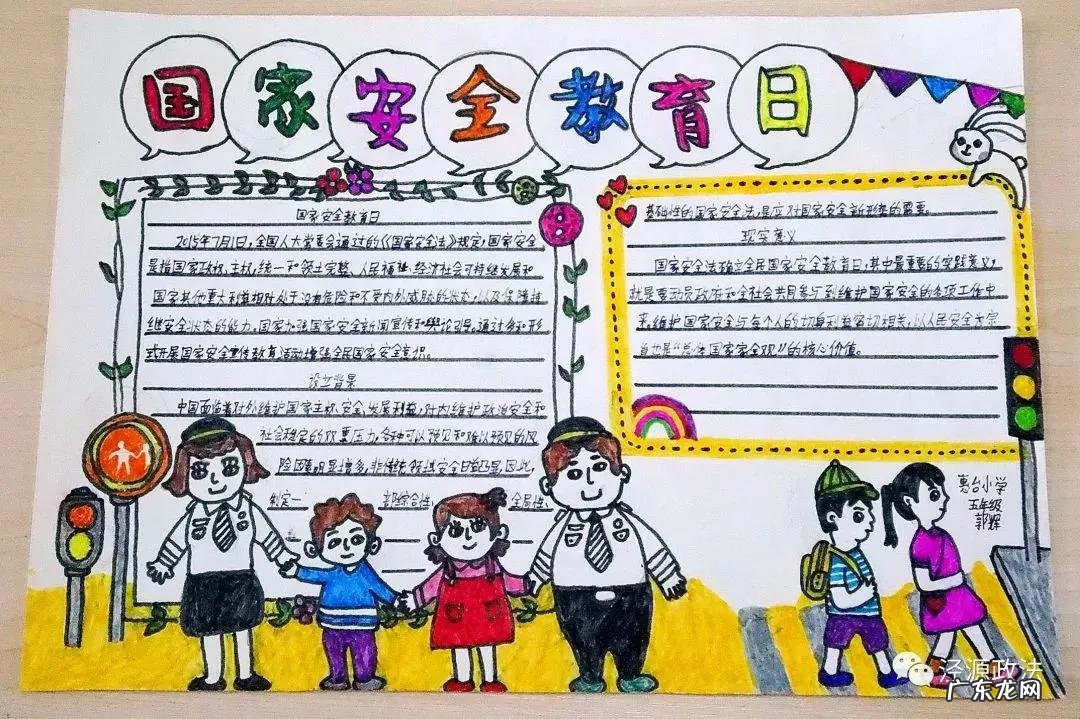 国家安全教育日
国家安全教育日
2015年7月1日，全国人大常委会通过的《国家安全法》规定，国家安全
是指国家政权、主权、统一和领土完整、人民福祉、经济社会可持续发展和
国家其他重大利益相对处于没有危险和不受内外威胁的状态，以及保障持
续安全状态的能力。国家加强国家安全新闻宣传和舆论引导。通过多种形
式开展国家安全宣传教育活动增强全民国家安全意识。
设立背景
中国面临着对外维护国家主权、安全、发展利益，对内维护政治安全和
社会稳定的双重压力，各种可以预见和难以预见的风
险因素明显增多，非传统领域安全日益凸显，因此，
制定一
部综合性、
全局性、
基础性的国家安全法，是应对国家安全新形势的需要。
现实意义
国家安全法确立全民国家安全教育日，其中最重要的实践意义，
就是要动员政府和全社会共同参与到维护国家安全的各项工作中
来，维护国家安全与每个人的切身利益密切相关，以人民安全为宗
旨也是“总体国家安全观”的核心价值。
惠台小学
五年级
郭辉
泾源政法
广东龙网